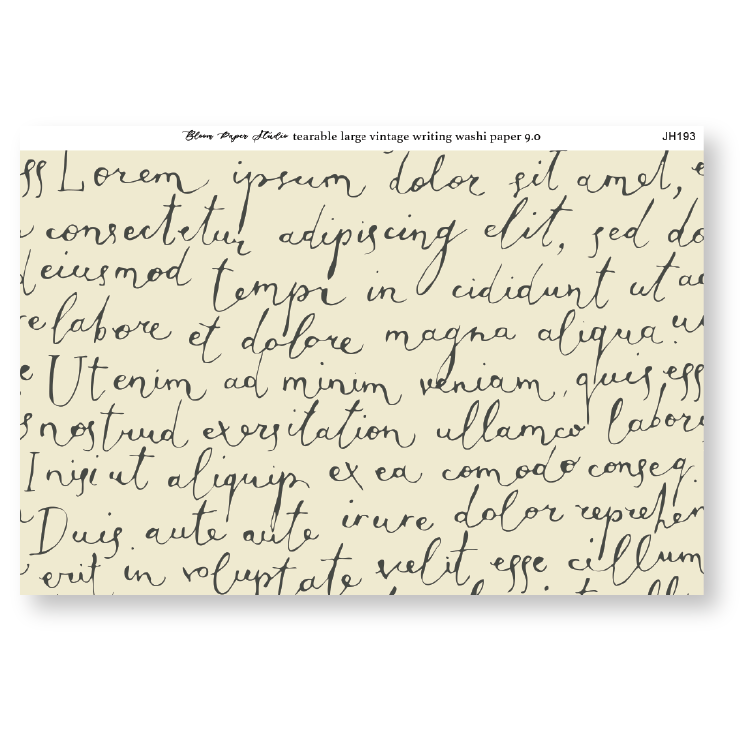 Bloom Paper Studio tearable large vintage writing washi paper 9.0 JH193
ss Lorem ipsum dolor sit amet, e
consectetur adipiscing elit, sed do
eiusmod tempr in cididunt ut
e labore et dolore magna aliqua.
Ut enim ad minim veniam, quis ess
s nostrud exersitation ullamco labor
Inisi ut aliquip ex ea comodo conseq.
Duis. aute aute irure dolor reprehen
erit in voluptate velit esse cillum